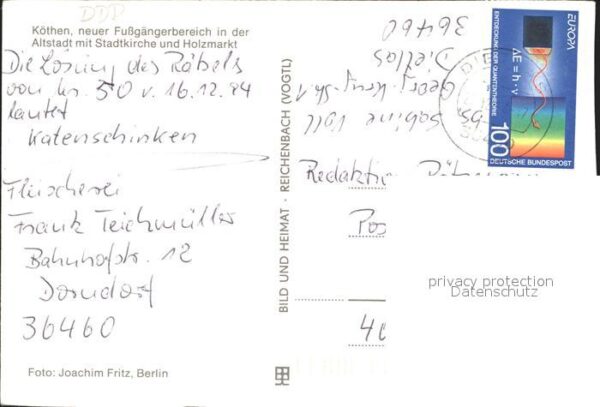 DDP
Köthen, neuer Fußgängerbereich in der
Altstadt mit Stadtkirche und Holzmarkt
Die Lösung des Rätsels
von Nr. 50 v. 16.12.94
lautet
Katenschinken
Fleischerei
Frank Teichmüller
Bahnhofstr. 12
Dorndorf
36460
Foto: Joachim Fritz, Berlin
BILD UND HEIMAT · REICHENBACH (VOGTL)
Sabine Voll
36460
Redaktion
Pos
40
EUROPA
ENTDECKUNG DER QUANTENTHEORIE
ΔE = h · ν
100
DEUTSCHE BUNDESPOST
privacy protection
Datenschutz